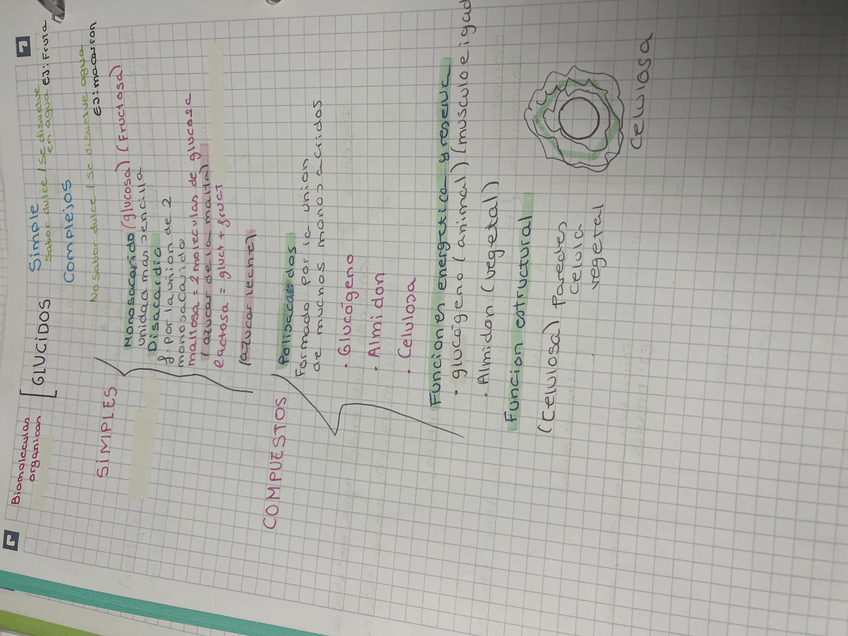 Biomoleculas
organicas
[GLUCIDOS
Simple
Sabor dulce / Se disuelve
en agua ej: Fruta
Complejos
No sabor dulce / Se disuelve agua
ej: macarron
SIMPLES
Monosacarido (glucosa) (Fructosa)
unidad mas sencilla
Disacardio
f. por la union de 2
monosacarido
maltosa = 2 moleculas de glucosa
(azucar de la malta)
lactosa = gluct + fruct
(azucar leche)
COMPUESTOS
Polisacaridos
Formado por la union
de muchos monosacridos
· Glucógeno
· Almidon
· Celulosa
Funciones energetica y reserva
· glucógeno (animal) (musculo e igad
· Almidon (vegetal)
Funcion estructural
(Celulosa) Paredes
celula
vegetal
Celulosa